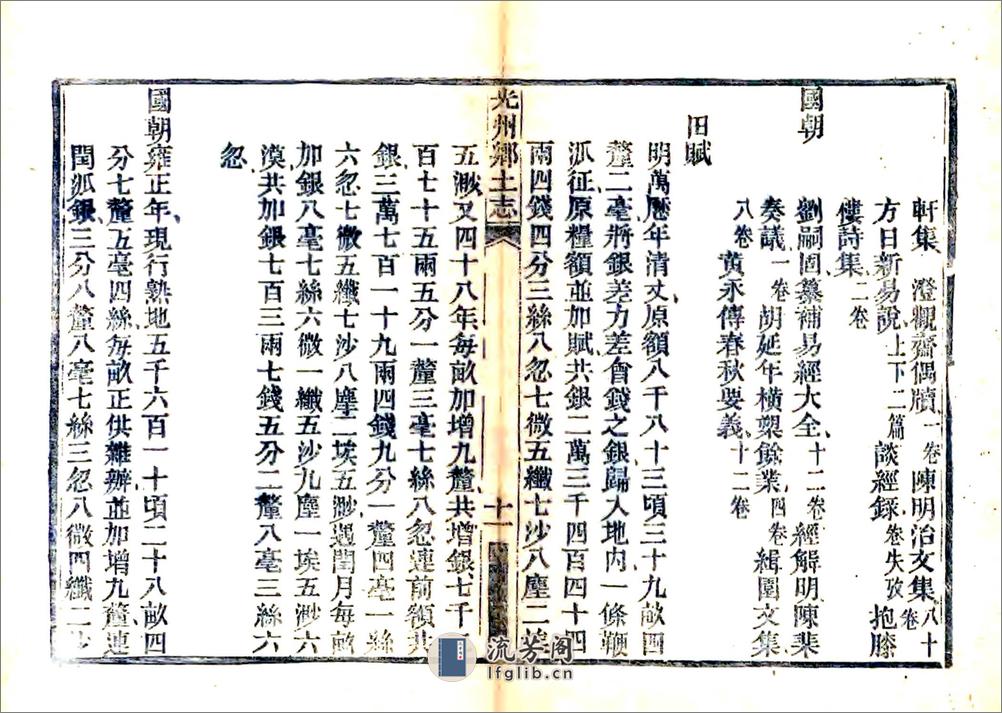 軒集 澄觀齋偶牘一卷 陳明治文集八十卷
方日新易說上下二篇 談經錄卷失攷 抱膝
僂詩集二卷
國朝
劉嗣固纂補易經大全十二卷 經解明陳棐
奏議一卷 胡延年橫槊餘業四卷 緝園文集
八卷 黃永傳春秋要義十二卷
旧賦
明萬曆年清丈原額八千八十三頃三十九畝四
釐二毫將銀差力差會錢之銀歸入地內一條鞭
派征原糧額並加賦共銀二萬三千四百四十四
兩四錢四分三絲八忽七微五纖七沙八塵二埃
光州鄉土志
十一
五渺又四十八年每畝加增九釐共增銀七千二
百七十五兩五分一釐三毫七絲八忽連前額共
銀三萬七百一十九兩四錢九分一釐四毫一絲
六忽七微五纖七沙八塵二埃五渺遇閏月每畝
加銀八毫七絲六微一纖五沙九塵一埃五渺六
漠共加銀七百三兩七錢五分二釐八毫三絲六
忽
國朝雍正年現行熟地五千六百一十頃二十八畝四
分七釐五毫四絲每畝正供雜辦並加增九釐連
閏派銀三分八釐八毫七絲三忽八微四纖二沙
流芳阁
lfglib.cn